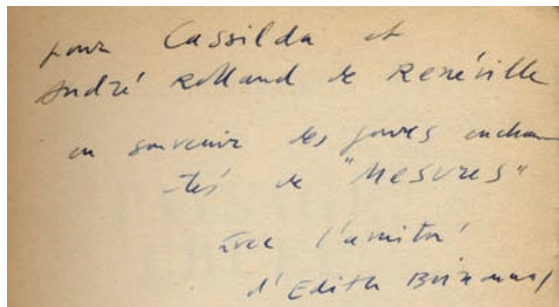 pour Cassilda et
André Rolland de Renéville
en souvenir des jours enchan
-tés de "Mesures"
avec l'amitié
d'Edith Boissonnas